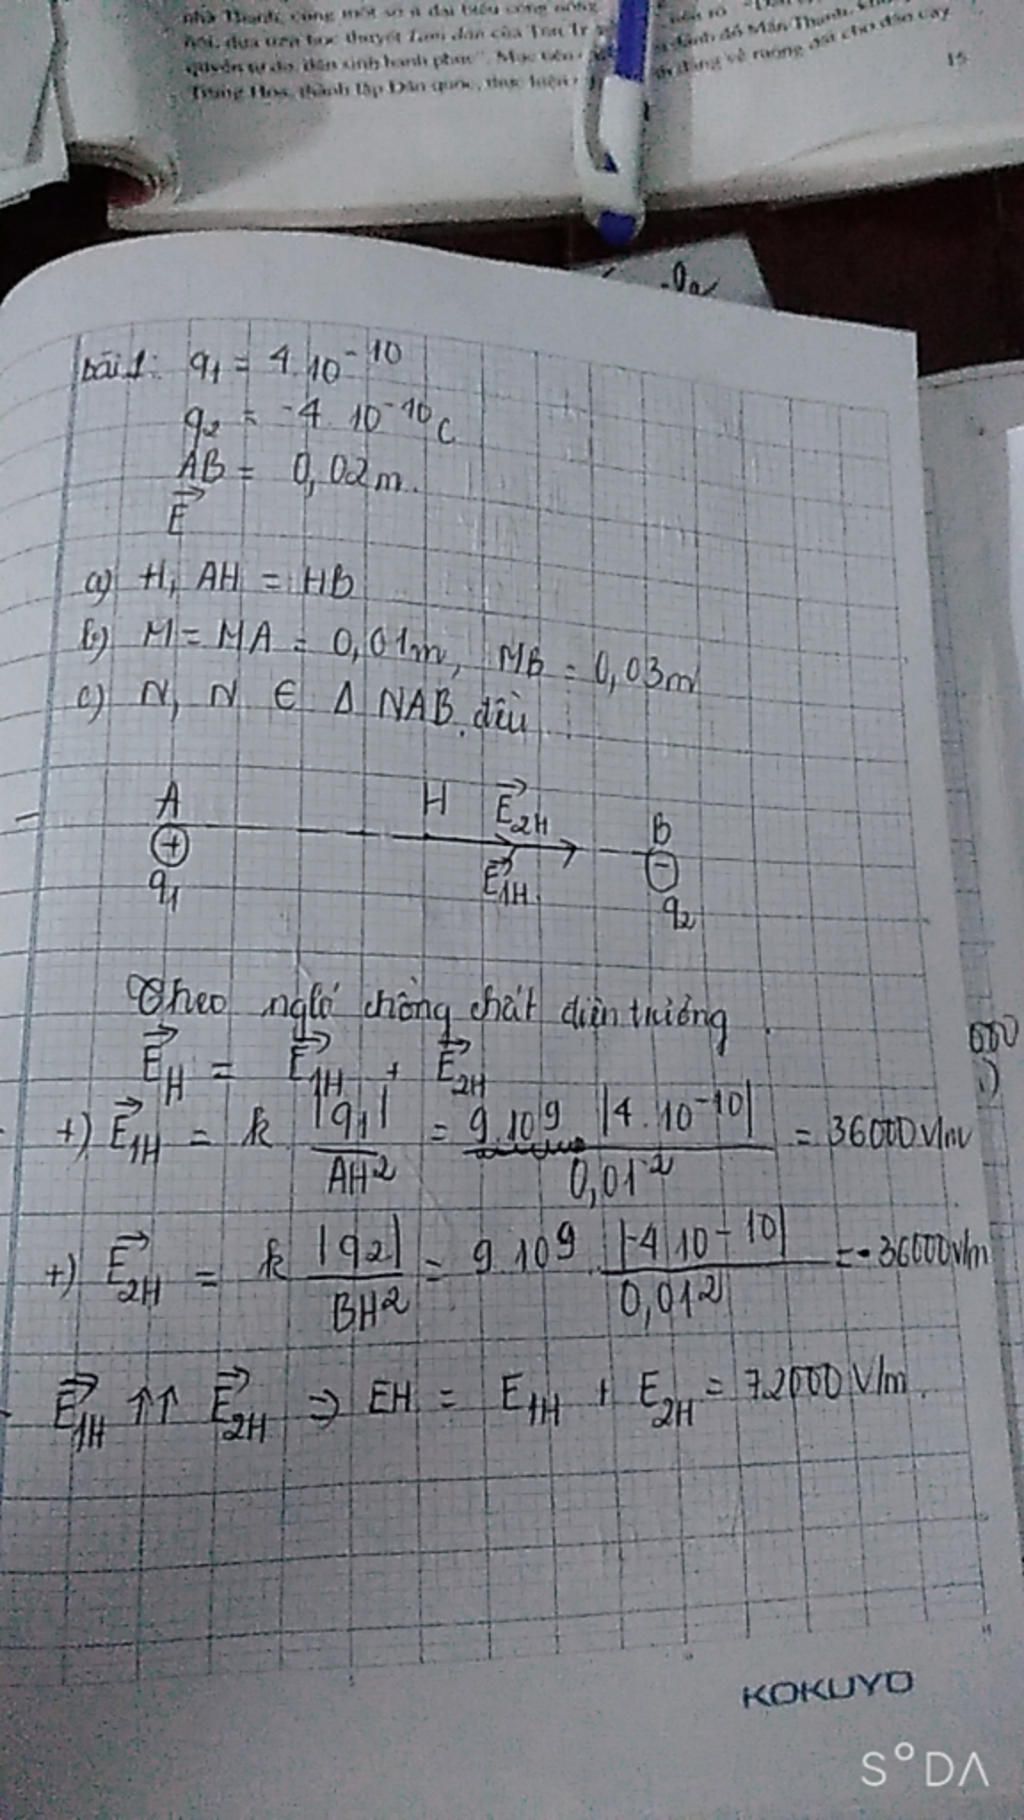 nhà Thanh, cùng một số đại biểu công nông
đưa trên học thuyết Tam dân của Tôn
quyền tự do, dân sinh hạnh phúc". Mục tiêu
Trung Hoa, thành lập Dân quốc, thực hiện
đánh đổ Mãn Thanh,
đẳng về ruộng đất cho dân cày
15
bài 1: q₁ = 4.10⁻¹⁰
q₂ = -4.10⁻¹⁰C
AB = 0,02m.
E⃗
a) H, AH = HB
b) M = MA = 0,01m, MB = 0,03m
c) N, N ∈ Δ NAB đều
A H E⃗₂H B
+ E⃗₁H -
q₁ q₂
Theo ngló chồng chất điện trường
E⃗H = E⃗₁H + E⃗₂H
+) E⃗₁H = k |q₁|/AH² = 9.10⁹ |4.10⁻¹⁰|/0,01² = 36000V/m
+) E⃗₂H = k |q₂|/BH² = 9.10⁹ |-4.10⁻¹⁰|/0,01² = 36000V/m
E⃗₁H ↑↑ E⃗₂H ⇒ EH = E₁H + E₂H = 72000V/m.
KOKUYO
S°DA